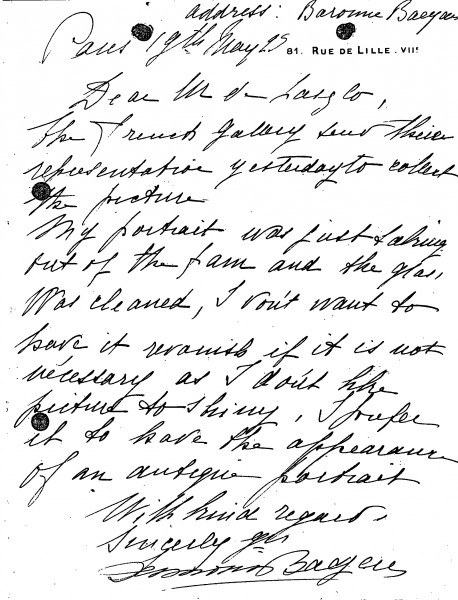 address: Baronne Baeyens
Paris 19th May 25
81. RUE DE LILLE. VIIE
Dear M de Laszlo,
The French Gallery send their
representative yesterday to collect
the picture
My portrait was just taking
out of the fram and the glas,
was cleaned, I don't want to
have it revarnish if it is not
necessary as I don't like
picture to shiny, I prefer
it to have the appearance
of an antique portrait
With kind regards
Sincerly
Baeyens